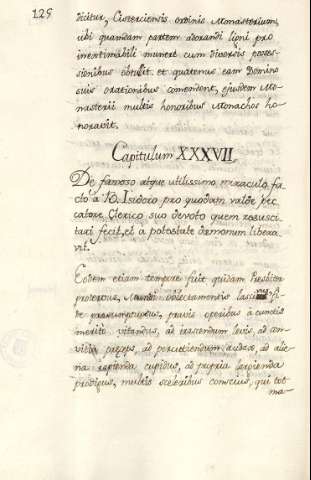 125
dicitur, Cisterciensis ordinis Monasterium,
ubi quandam partem adorandi ligni pro
inextimabili munere cum diversis posses-
sionibus obtulit. et quatenus eam Domino
suis orationibus comendent, ejusdem Mo-
nasterii multis honoribus Monachos ho-
noravit.
Capitulum XXXVII
De famoso atque utilissimo miraculo fa-
cto à B. Isidoro pro quodam valde pec-
catore Clerico suo devoto quem resusci-
tari fecit, et a potestate dæmonum libera
vit.
Eodem etiam tempore fuit quidam Presbiter
protervus, Mundi oblectamentis
te presumptuosus, pravis operibus à cunctis
merito vitandus, ad irascendum levis, ad
præceps, ad percutiendum audax, ad alie
na rapienda cupidus, ad propria largienda
prodigus, multis sceleribus conscius, qui tot
ma-